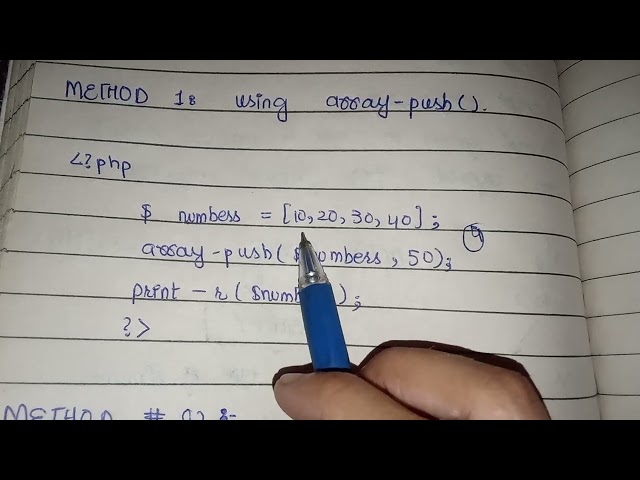 METHOD 1: using array-push().
<?php
$ numbers = [10,20,30,40];
array-push($numbers, 50);
print-r($num);
?>
METHOD #